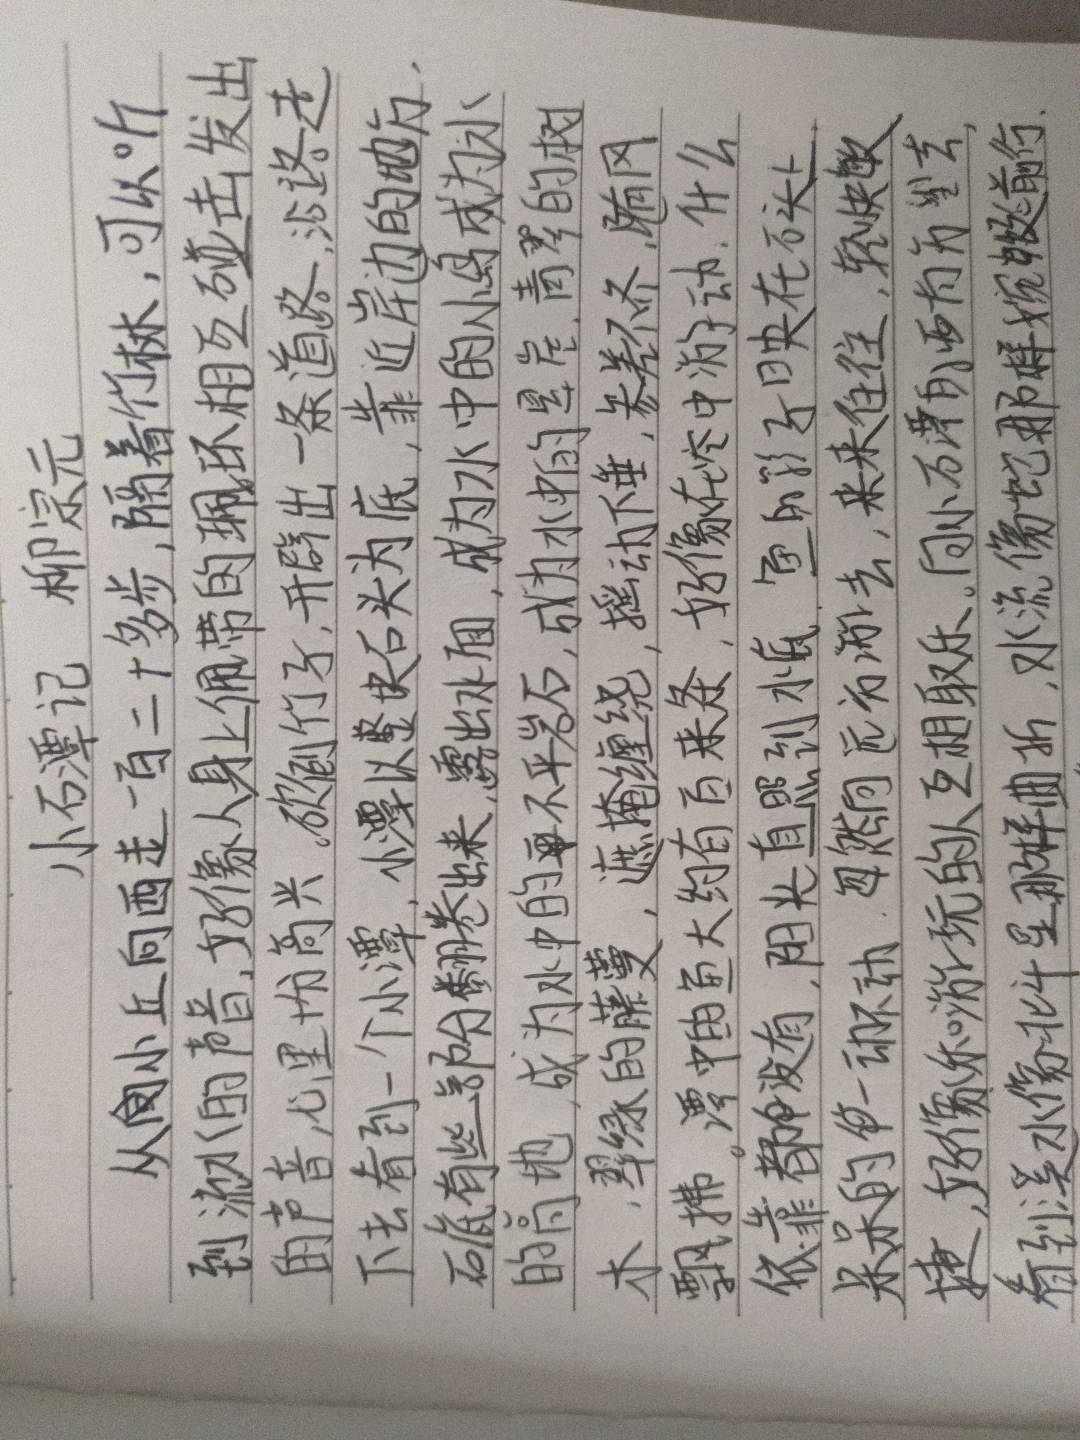 小石潭记 柳宗元
从小丘向西走一百二十多步,隔着竹林,可以听
到流水的声音,好像人身上佩带的珮环相互碰击发出
的声音,心里十分高兴。砍倒竹子,开辟出一条道路,沿路走
下去看到一个小潭,小潭以整块石头为底,靠近岸边的地方,
石底有些部分翻卷出来,露出水面,成为水中的小岛成为水
的高地,成为水中的不平岩石,成为水中的悬崖,青翠的树
木,翠绿的藤蔓,遮掩缠绕,摇动下垂,参差不齐,随风
飘拂。潭中的鱼大约有百来条,好像在空中游动.什么
依靠都没有,阳光直照到水底.鱼的影子映在石头上
呆呆的一动不动.忽然向远方游去,来来往往,轻快敏
捷,好像和游玩的人互相取乐。向小石潭的西方望去,
看到溪水像北斗星那样曲折,水流像蛇那样蜿蜒前行.